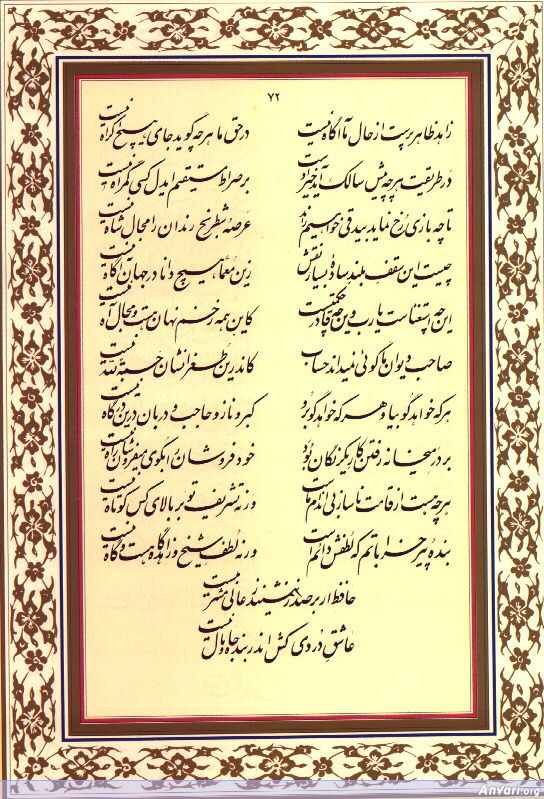 ۷۲
زاهد ظاهر پرست از حال ما آگاه نیست در حق ما هر چه گوید جای هیچ اکراه نیست
در طریقت هر چه پیش سالک آید خیر اوست بر صراط مستقیم ای دل کسی گمراه نیست
تا چه بازی رخ نماید بیدقی خواهیم راند عرصه شطرنج رندان را مجال شاه نیست
چیست این سقف بلند ساده بسیار نقش زین معما هیچ دانا در جهان آگاه نیست
این چه استغناست یا رب وین چه قادر حکمتست کاین همه زخم نهان هست و مجال آه نیست
صاحب دیوان ما گوئی نمیداند حساب کاندرین طغرا نشان حسبة لله نیست
هر که خواهد گو بیا و هر که خواهد گو برو کبر و ناز و حاجب و دربان درین درگاه نیست
بر در میخانه رفتن کار یکرنگان بود خود فروشان را بکوی میفروشان راه نیست
هر چه هست از قامت ناساز بی اندام ماست ورنه تشریف تو بر بالای کس کوتاه نیست
بنده پیر خراباتم که لطفش دائم است ورنه لطف شیخ و زاهد گاه هست و گاه نیست
حافظ ار بر صدر ننشیند ز عالی مشربیست
عاشق دردی کش اندر بند جاه و مال نیست
Anvari.org